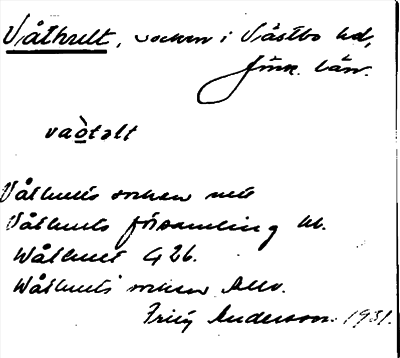 Våthult, socken i Västbo hd,
Jönk. län.
vaòtølt
Våthults socken
Våthults församling
Wåthult G 26.
Wåthults socken
Anderson 1931.